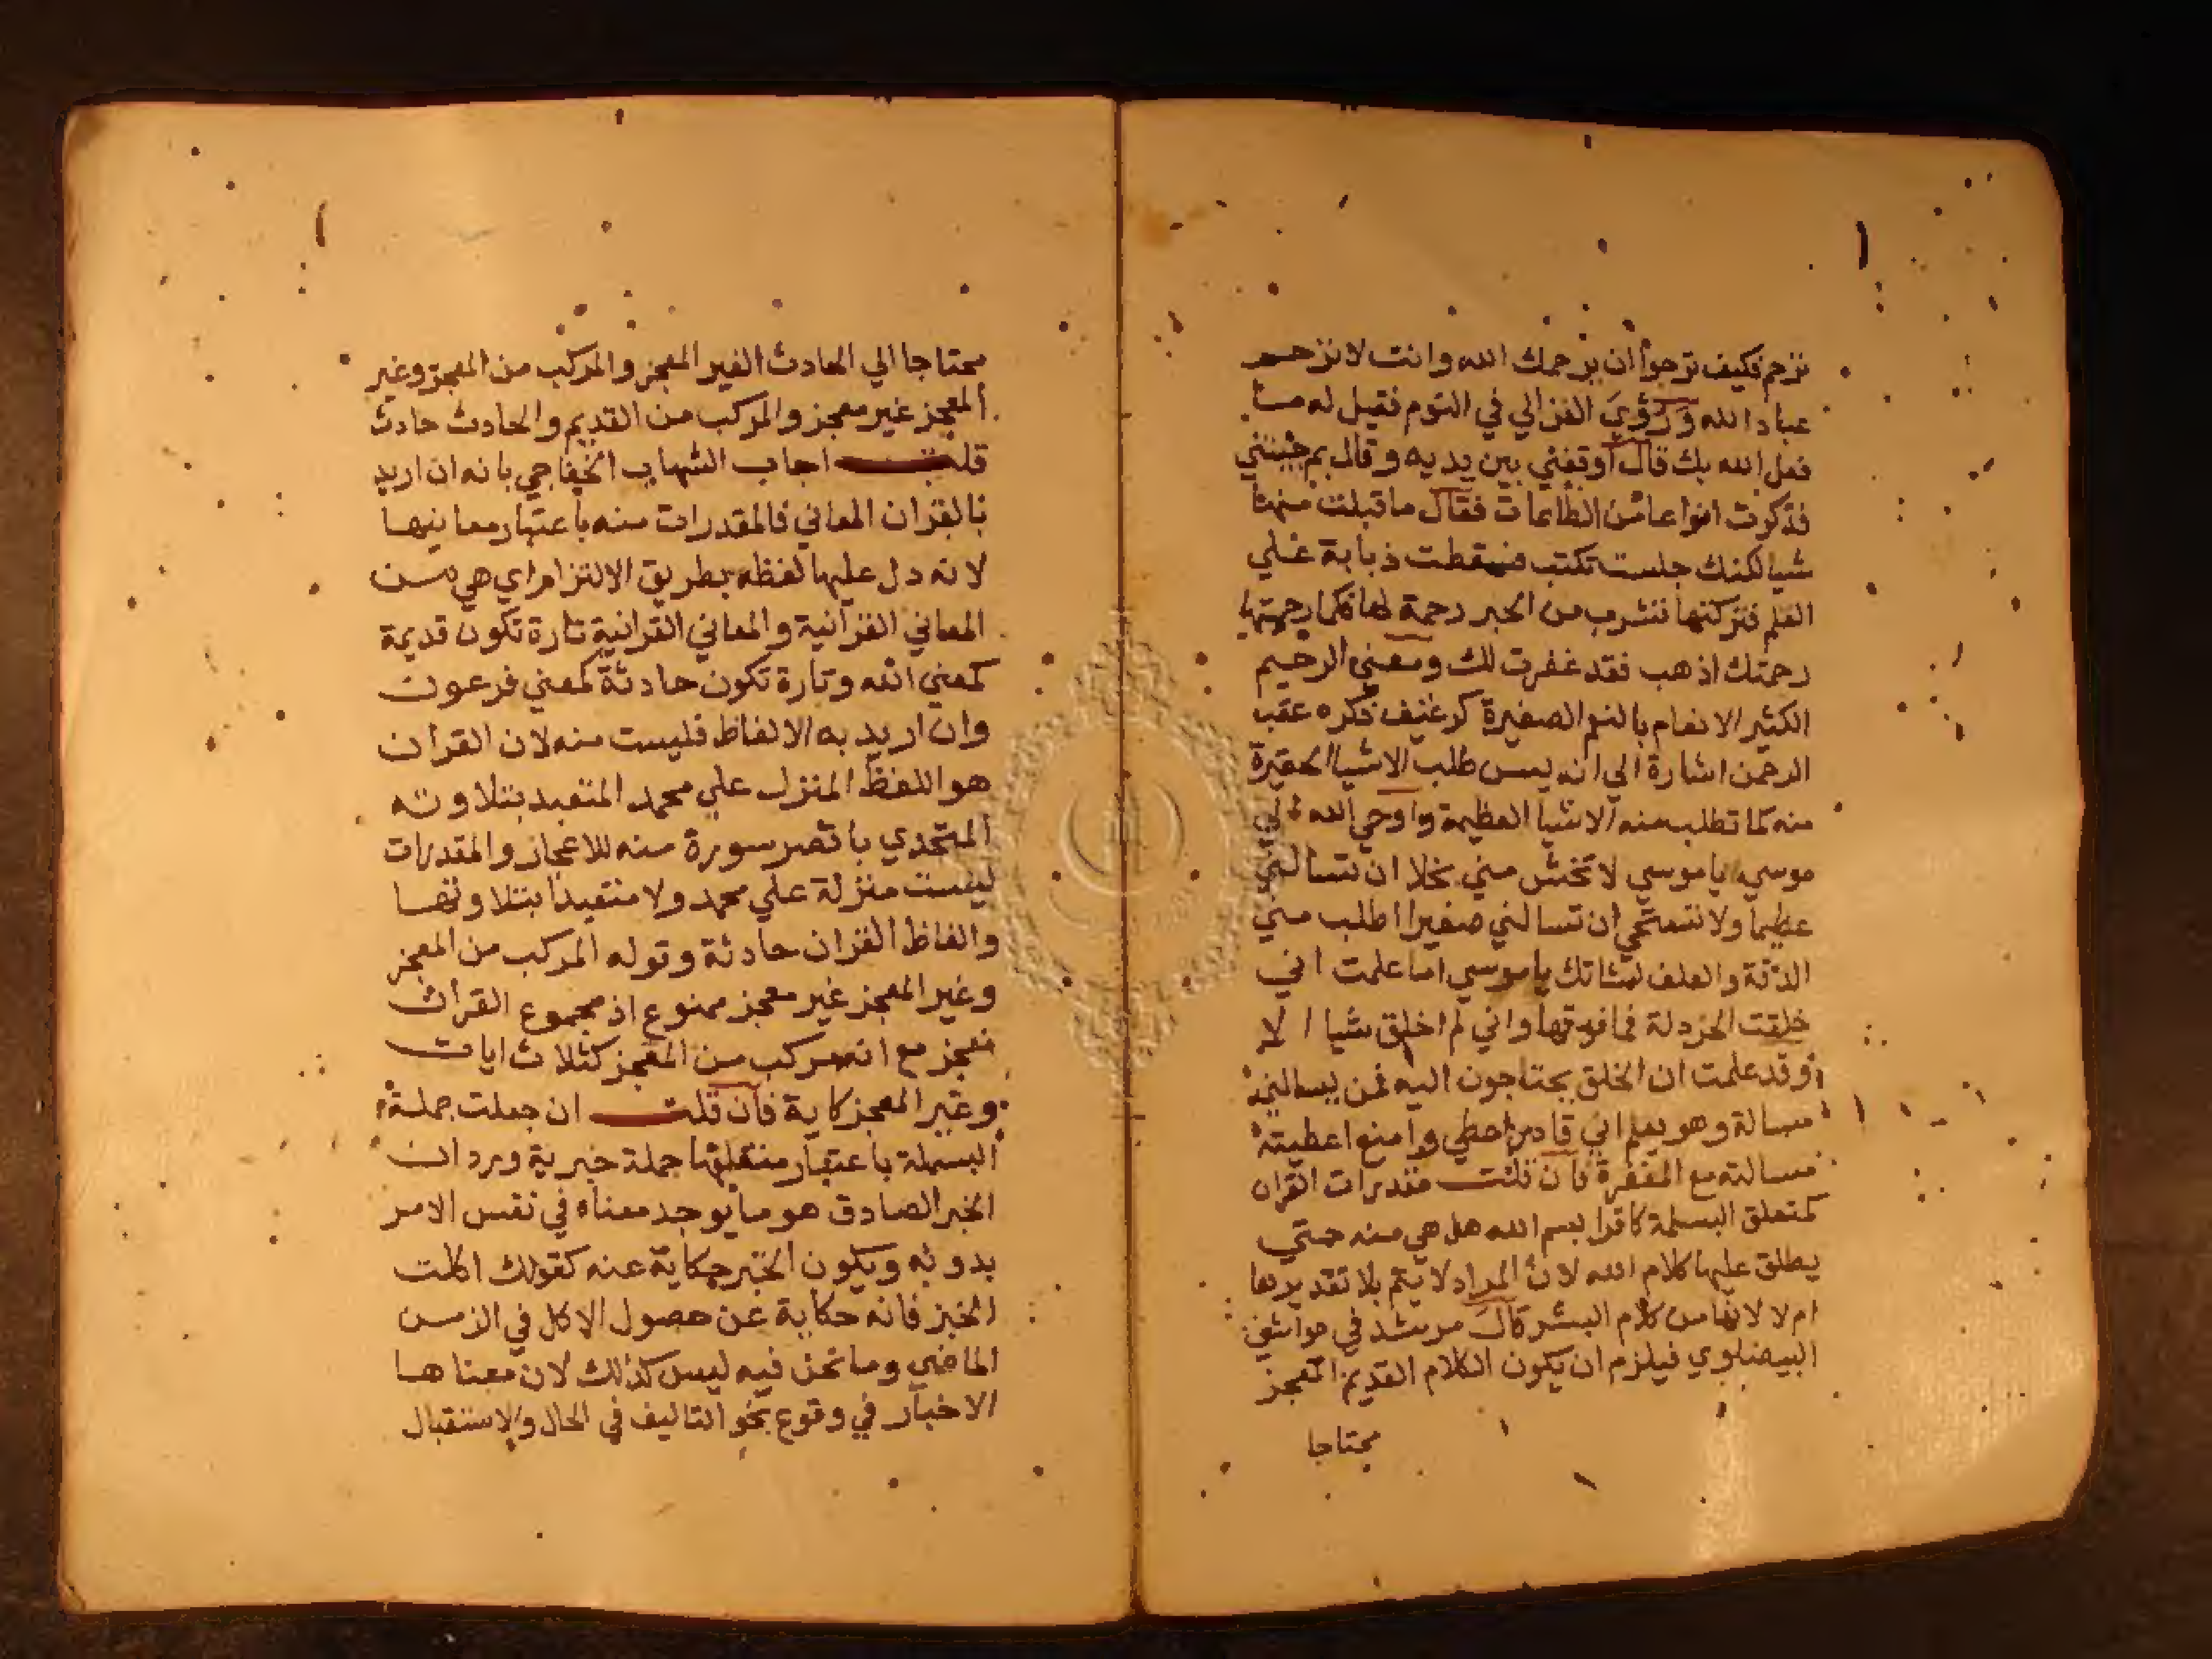 ترحم فكيف ترجوا ان يرحمك الله وانت لا ترحم
عباد الله ورؤي الغزالي في النوم فقيل له ما
فعل الله بك قال اوقفني بين يديه وقال بم جيتني
فذكرت انواعا من الطاعات فقال ما قبلت منها
شيا لكنك جلست تكتب فسقطت ذبابة علي
القلم فتركتها تشرب من الحبر رحمة لها فكما رحمتها
رحمتك اذهب فقد غفرت لك ومعني الرحيم
الكثير الانعام بالنعم الصغيرة كرغيف ذكره عقب
الرحمن اشارة الي انه ليس طلب الاشيا الحقيرة
منه كما تطلب منه الاشيا العظيمة واوحي الله الي
موسي يا موسي لا تخش مني بخلا ان تسالني
عظيما ولا تستحي ان تسالني صغيرا اطلب مني
الدقة والعلف لشاتك يا موسي اما علمت اني
خلقت الخردلة فما فوقها واني لم اخلق شيا الا
وقد علمت ان الخلق يحتاجون اليه فمن يسالني
مسالة وهو يعلم اني قادر اعطي وامنع اعطيته
مسالته مع المغفرة فان قلت مقدرات القران
كمتعلق البسملة كاقرا بسم الله هل هي منه حتي
يطلق عليها كلام الله لان المراد لا يتم بلا تقديرها
ام لا لانها من كلام البشر قال مرشد في حواشي
البيضاوي فيلزم ان يكون الكلام القديم المعجز
محتاجا
محتاجا الي الحادث الغير المعجز والمركب من المعجز وغير
المعجز غير معجز والمركب من القديم والحادث حادث
قلت اجاب الشهاب الخفاجي بانه ان اريد
بالقران المعاني فالمقدرات منه باعتبار معانيها
لانه دل عليها لفظه بطريق الالتزام اي هي من
المعاني القرآنية والمعاني القرانية تارة تكون قديمة
كمعني الله وتارة تكون حادثة كمعني فرعون
وان اريد به الالفاظ فليست منه لان القران
هو اللفظ المنزل علي محمد المتعبد بتلاوته
المتحدي باقصر سورة منه للاعجاز والمقدرات
ليست منزلة علي محمد ولا متعبدا بتلاوتها
والفاظ القران حادثة وقوله المركب من المعجز
وغير المعجز غير معجز ممنوع اذ مجموع القران
معجز مع انه مركب من المعجز كثلاث ايات
وغير المعجز كاية فان قلت ان جعلت جملة
البسملة باعتبار متعلقها جملة خبرية ورد ان
الخبر الصادق هو ما يوجد معناه في نفس الامر
بدونه ويكون الخبر حكاية عنه كقولك اكلت
الخبز فانه حكاية عن حصول الاكل في الزمن
الماضي وما نحن فيه ليس كذلك لان معناها
الاخبار في وقوع نحو التاليف في الحال والاستقبال